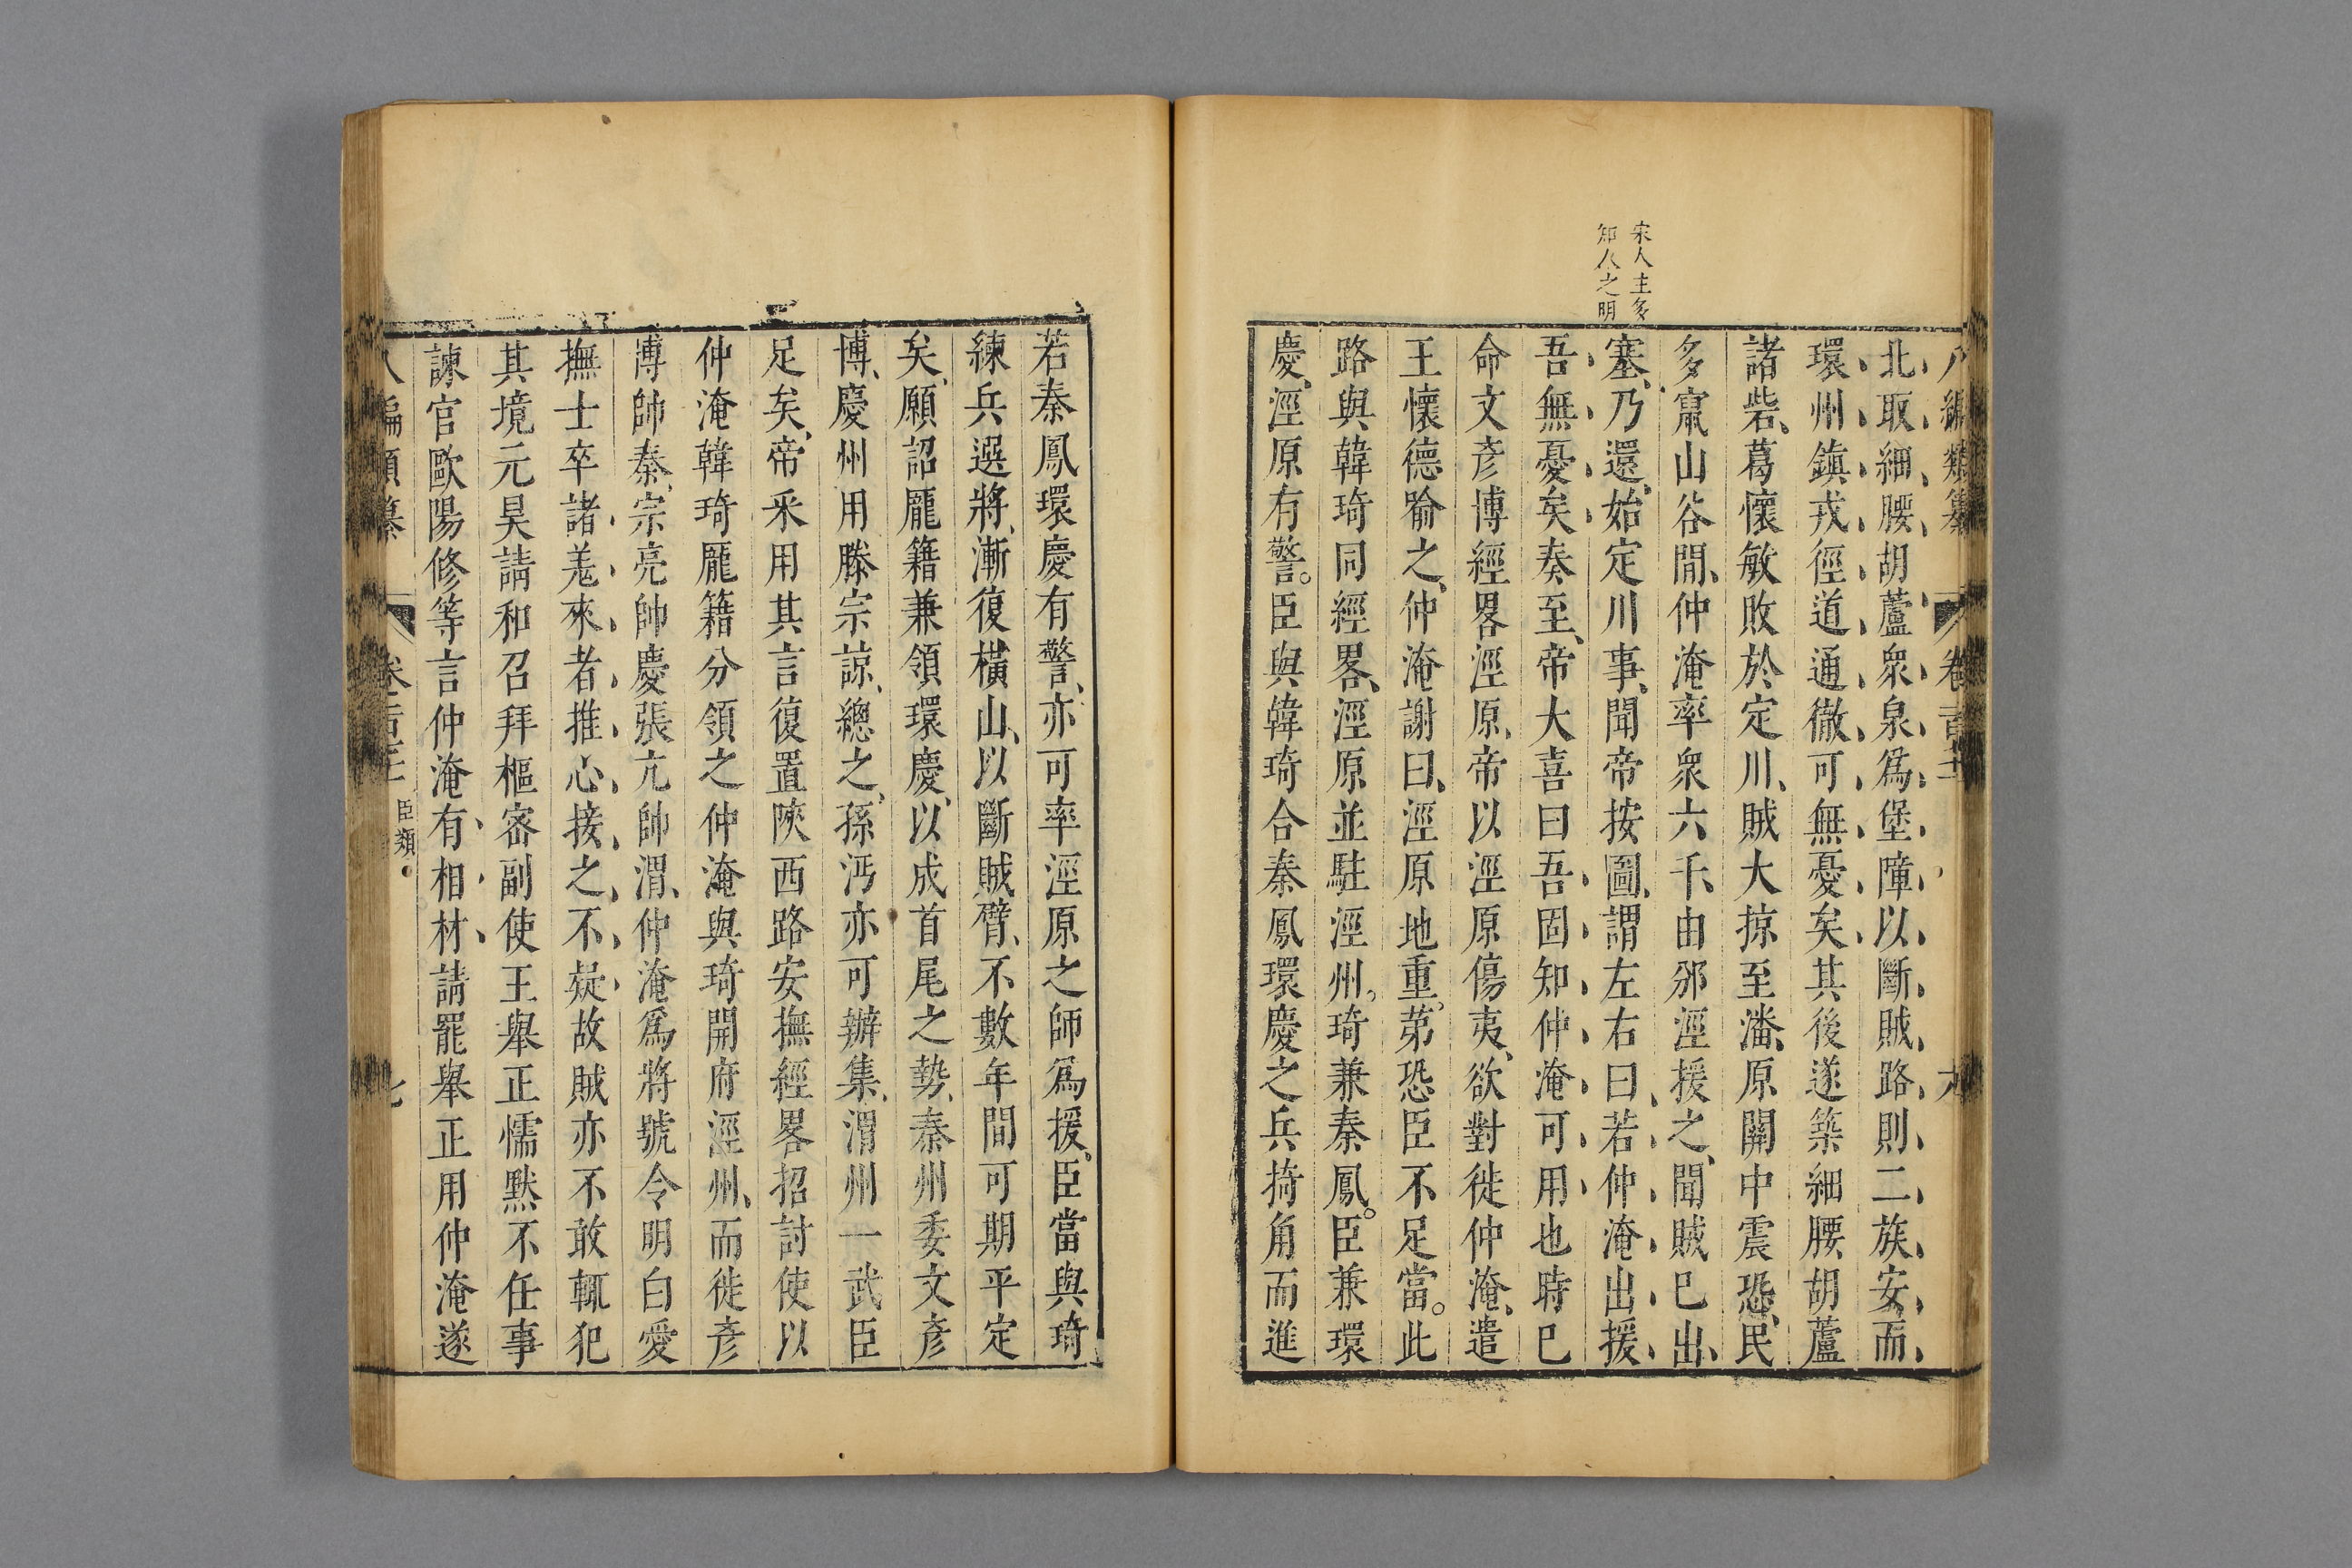 八編類纂
北取細腰胡蘆衆泉爲堡障以斷賊路則二族安而
環州鎮戎徑道通徹可無憂矣其後遂築細腰胡蘆
諸砦、葛懷敏敗於定川、賊大掠至潘原關中震恐、民
多竄山谷間、仲淹率衆六千、由邠涇援之、聞賊已出
塞、乃還、始定川事、聞帝按圖、謂左右曰、若仲淹出援、
宋人主多
知人之明
吾無憂矣奏至、帝大喜曰吾固知仲淹可用也時已
命文彦博經畧涇原、帝以涇原傷夷、欲對徙仲淹、遣
王懷德喻之、仲淹謝曰、涇原地重。第恐臣不足當。此
路與韓琦同經畧、涇原並駐涇州。琦兼秦鳳。臣兼環
慶、涇原有警。臣與韓琦合秦鳳環慶之兵掎角而進
若秦鳳環慶有警、亦可率涇原之師爲援、臣當與琦
練兵選將、漸復橫山、以斷賊臂、不數年間可期平定
矣、願詔龎籍兼領環慶、以成首尾之勢、秦州委文彦
博、慶州用滕宗諒、總之、孫沔亦可辦集、渭州一武臣
足矣、帝采用其言復置陝西路安撫經畧招討使以
仲淹韓琦龎籍分領之仲淹與琦開府涇州、而徙彦
博帥秦、宗亮帥慶張亢帥渭、仲淹爲將號令明白愛
撫士卒諸羗來者推心接之不疑故賊亦不敢輒犯
其境元昊請和召拜樞密副使王舉正懦默不任事
諫官歐陽修等言仲淹有相材、請罷舉正用仲淹遂
臣類